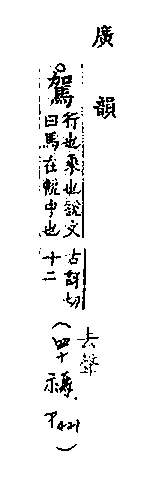 廣韻
駕
行也乘也說文
曰馬在軛中也
古訝切
十二
(去聲
四十禡
P421)